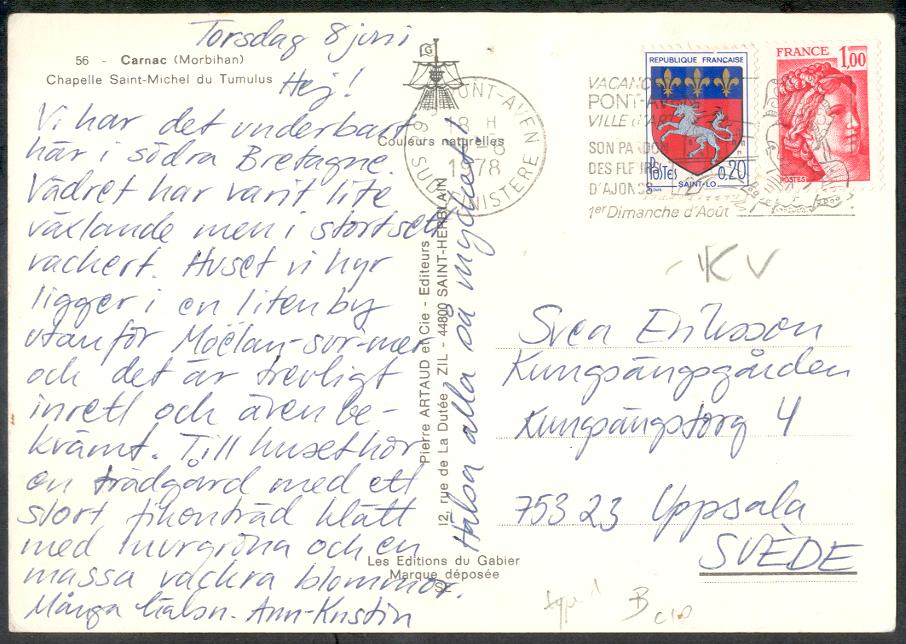 Torsdag 8 juni
56 - Carnac (Morbihan)
Chapelle Saint-Michel du Tumulus
Hej!
Vi har det underbart
här i södra Bretagne.
Vädret har varit lite
växlande men i stort sett
vackert. Huset vi hyr
ligger i en liten by
utanför Moëlan-sur-mer
och det är trevligt
inrett och även be-
krämt. Till huset hör
en trädgård med ett
stort fikonträd klätt
med murgröna och en
massa vackra blommor.
Många häls. Ann-Kristin
Hälsa alla så mycket!
Couleurs naturelles
Pierre ARTAUD et Cie - Editeurs
12, rue de La Dutée ZIL - 44800 SAINT-HERBLAIN
Les Editions du Gabier
Marque déposée
PONT-AVEN
18 H
1978
SUD FINISTERE
VACANC
PONT-A
VILLE d'AR
SON PARDON
DES FLEURS
D'AJONCS
1er Dimanche d'Août
REPUBLIQUE FRANÇAISE
POSTES
0,20
SAINT-LO
FRANCE
1,00
POSTES
KV
Svea Eriksson
Kungsängsgården
Kungsängstorg 4
753 23 Uppsala
SVÈDE
B